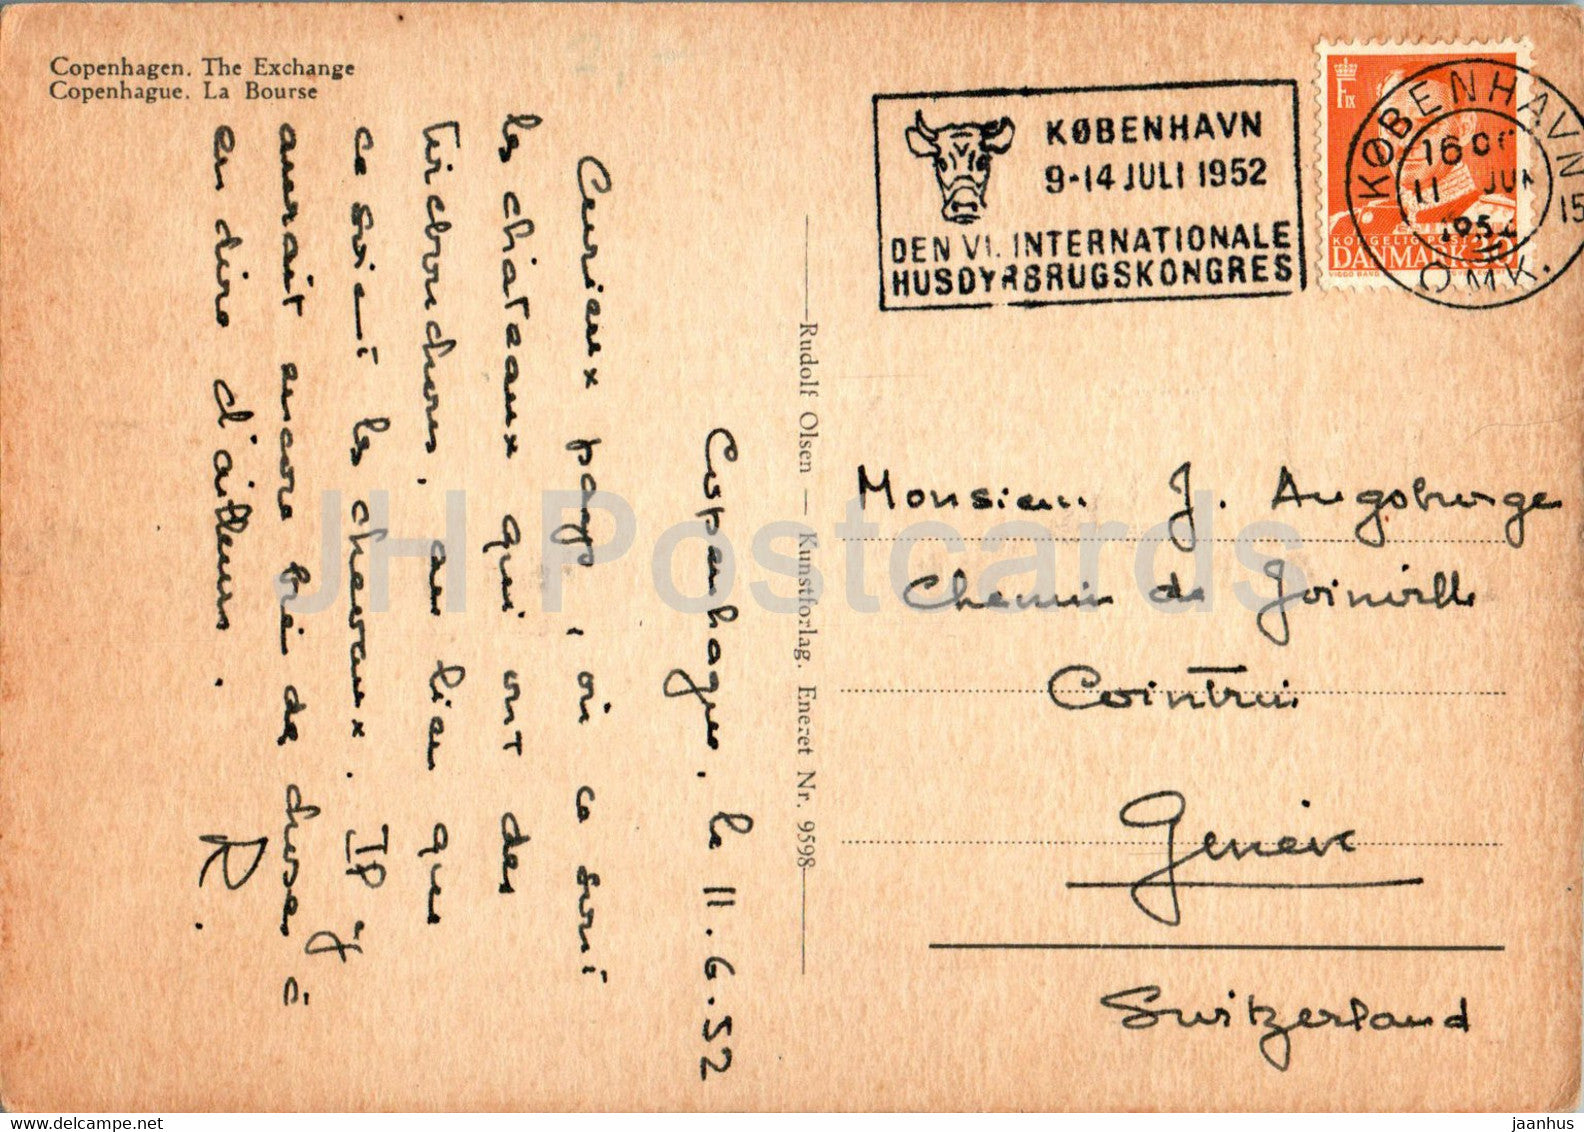 Copenhagen. The Exchange
Copenhague. La Bourse
KØBENHAVN
9-14 JULI 1952
DEN VI. INTERNATIONALE
HUSDYRBRUGSKONGRES
F IX
KONGELIG POST
DANMARK 30
KØBENHAVN
16
11 JUN
1952
15
OMK.
Copenhague, le 11.6.52
Curieux pays, où ce sont
les chateaux qui ont des
tirebouchons, au lieu que
ce soient les chevaux. Il y
aurait encore bien de choses à
en dire d'ailleurs.
R.
Rudolf Olsen — Kunstforlag. Eneret Nr. 9598
Monsieur J. Augsburger
Chemin de Joinville
Cointrin
Genève
Switzerland
JH Postcards
jaanhus